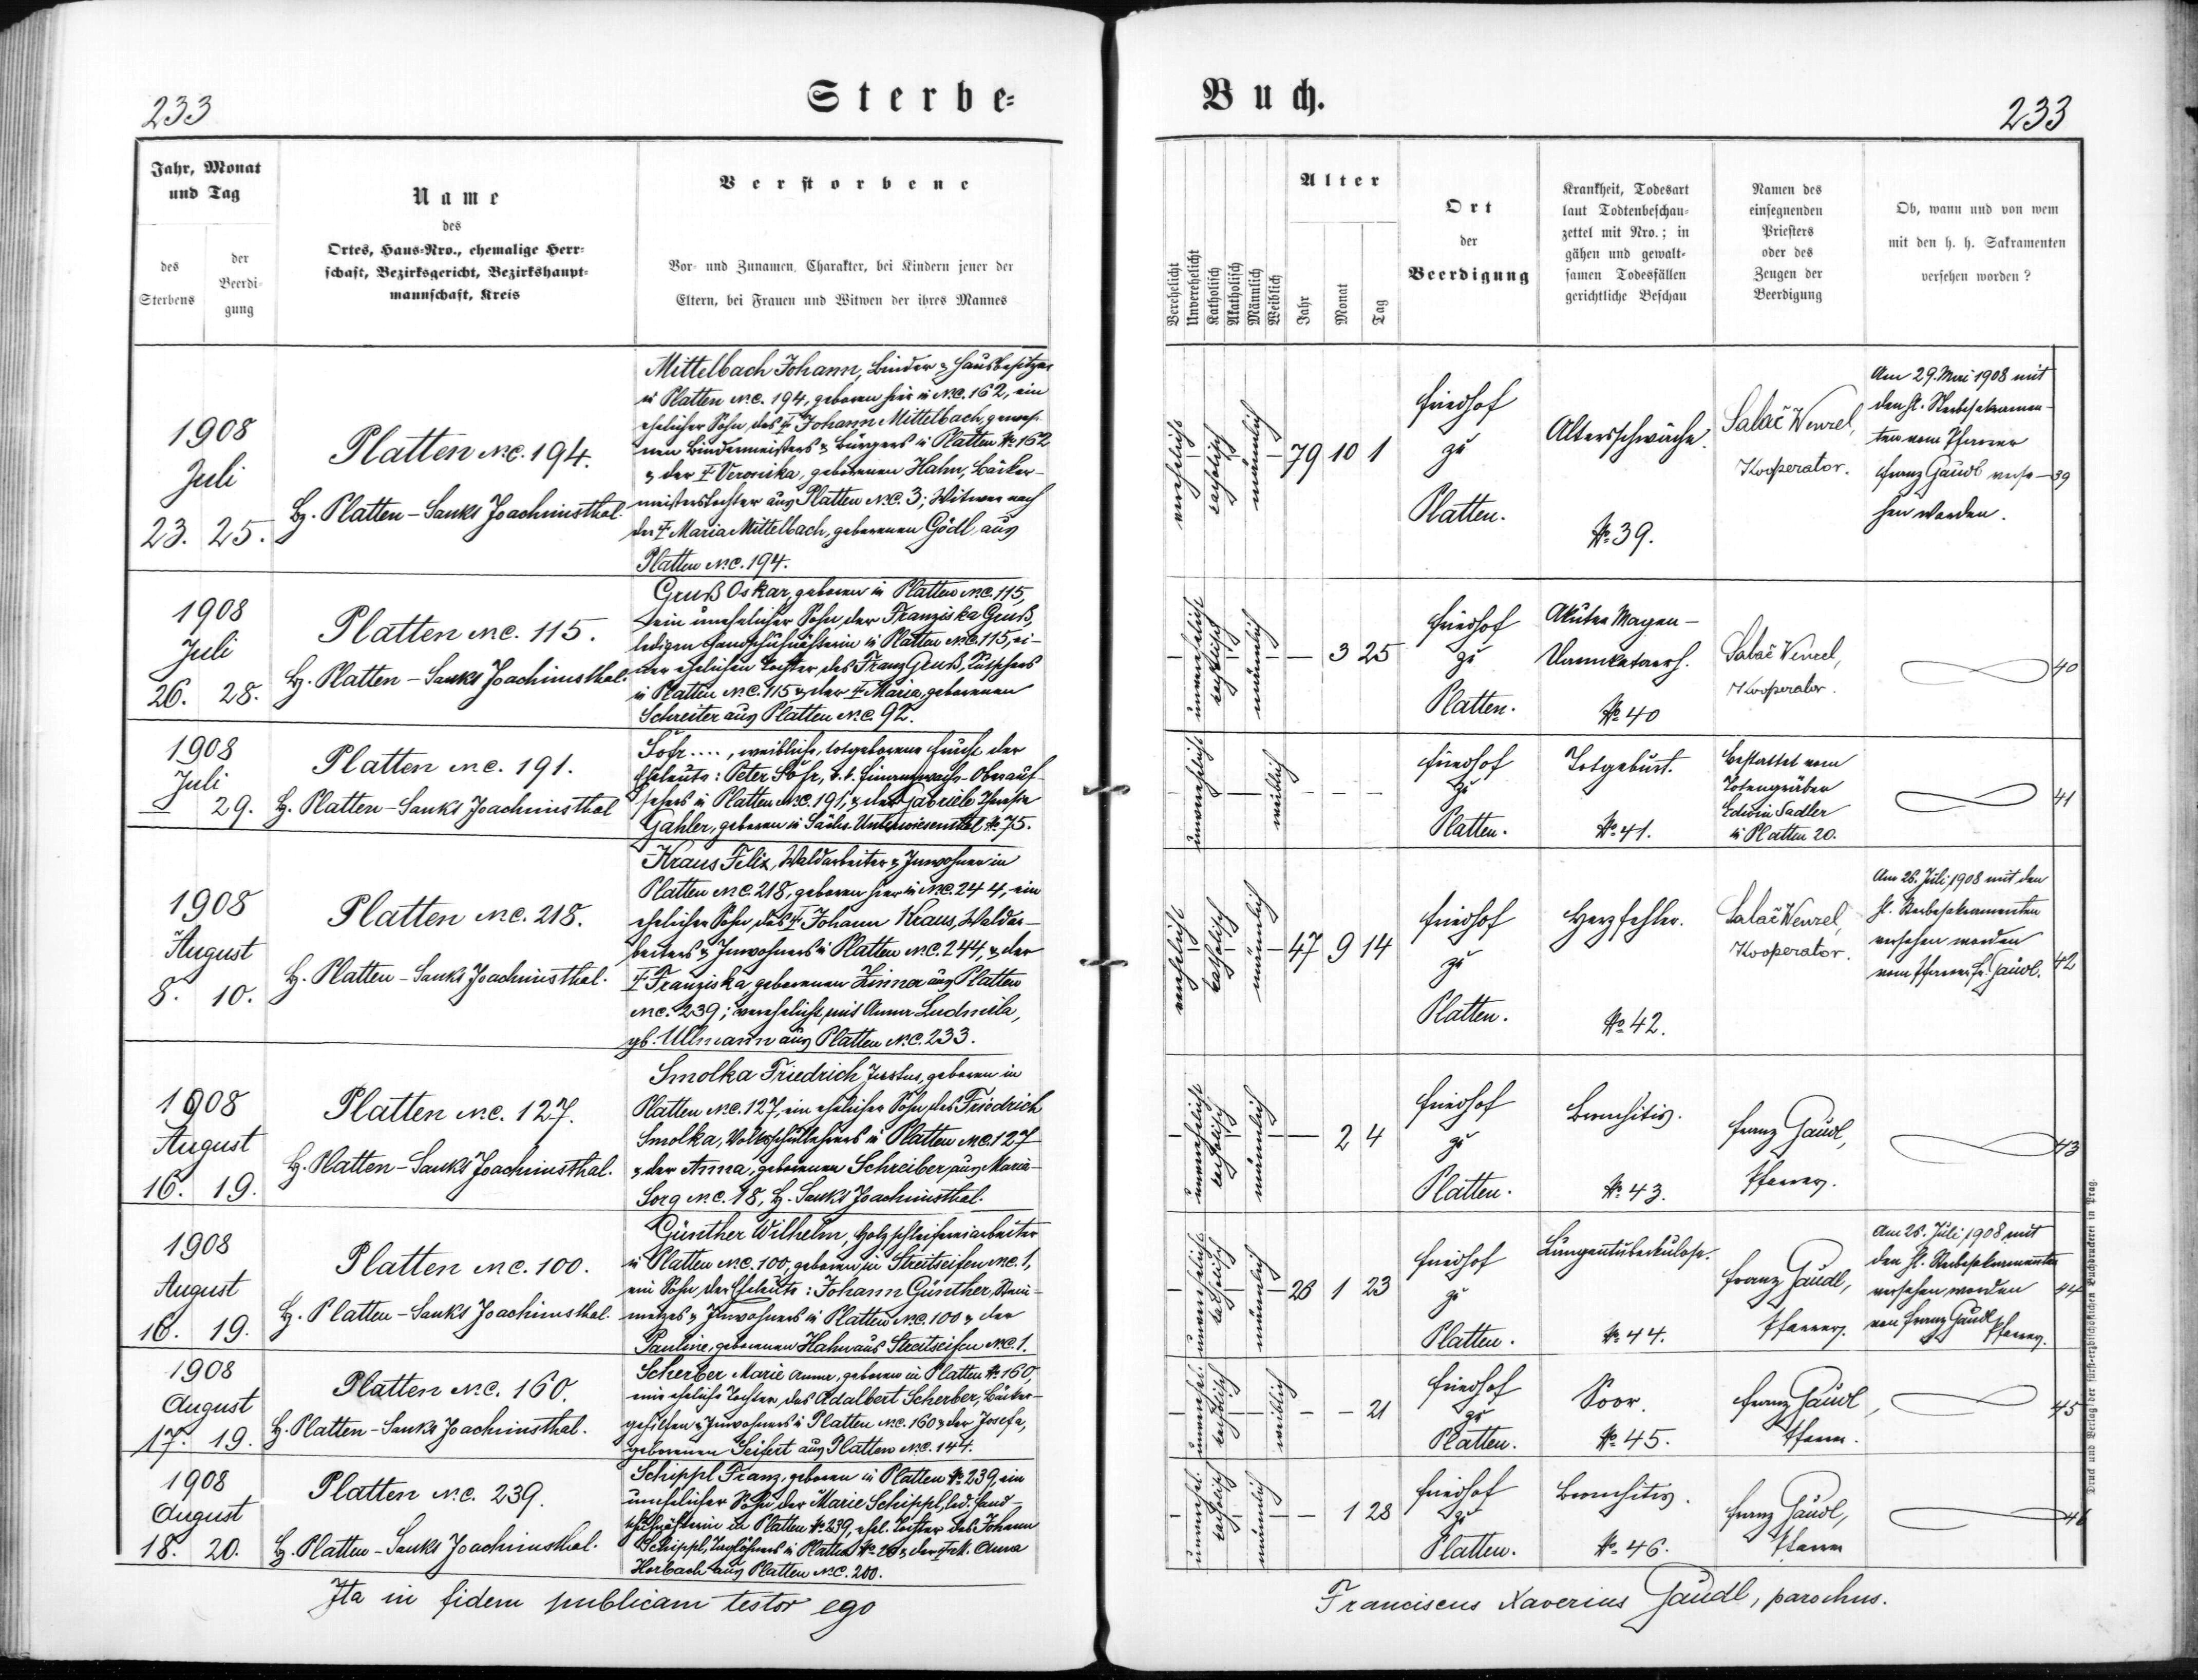 233
Sterbe-
Jahr, Monat
und Tag
des
Sterbens
der
Beerdi-
gung
Name
des
Ortes, Haus-Nro., ehemalige Herr-
schaft, Bezirksgericht, Bezirkshaupt-
mannschaft, Kreis
Verstorbene
Vor- und Zunamen, Charakter, bei Kindern jener der
Eltern, bei Frauen und Witwen der ihres Mannes
1908
Juli
23. 25.
Platten N.C. 194.
Bz. Platten-Sankt Joachimsthal.
Mittelbach Johann, Binder & Hausbesitzer
in Platten N.C. 194, geboren hier in N.C. 162, ein
ehelicher Sohn des † Johann Mittelbach, gewes-
nen Bindermeisters & Bürgers in Platten № 162
& der † Veronika, geborenen Hahn, Bäcker-
meisterstochter aus Platten N.C. 3; Witwer nach
der † Maria Mittelbach, geborenen Gödl aus
Platten N.C. 194.
1908
Juli
26. 28.
Platten N.C. 115.
Bz. Platten-Sankt Joachimsthal.
Gruß Oskar, geboren in Platten N.C. 115,
ein unehelicher Sohn der Franziska Gruß,
ledigen Handschuhnähterin in Platten N.C. 115, ei-
ner ehelichen Tochter des Franz Gruß,
in Platten N.C. 115 & der † Maria, geborenen
Schreiter aus Platten N.C. 92.
1908
Juli
— 29.
Platten N.C. 191.
Bz. Platten-Sankt Joachimsthal
...., weibliche, totgeborene Frucht der
Eheleute: Peter k.k. Finanzwach-Oberauf-
sehers in Platten N.C. 191, & der Gabriele Therese
Gahler, geboren in Sächs. Unterwiesenthal № 75.
1908
August
8. 10.
Platten N.C. 218.
Bz. Platten-Sankt Joachimsthal.
Kraus Felix, Waldarbeiter & Inwohner in
Platten N.C. 218, geboren hier in N.C. 244, ein
ehelicher Sohn des † Johann Kraus, Waldar-
beiters & Inwohners in Platten N.C. 244, & der
† Franziska geborenen Zinner aus Platten
N.C. 239; verehelicht mit Anna Ludmila,
gb. Ullmann aus Platten N.C. 233.
1908
August
16. 19.
Platten N.C. 127.
Bz. Platten-Sankt Joachimsthal.
Smolka Friedrich Justus, geboren in
Platten N.C. 127, ein ehelicher Sohn des Friedrich
Smolka, Volksschullehrers in Platten N.C. 127
& der Anna, geborenen Schreiber aus Maria-
Sorg N.C. 18, Bz. Sankt Joachimsthal.
1908
August
16. 19.
Platten N.C. 100.
Bz. Platten-Sankt Joachimsthal.
Günther Wilhelm, Holzschleifereiarbeiter
in Platten N.C. 100, geboren in Streitseifen N.C. 1,
ein Sohn der Eheleute: Johann Günther, Stein-
metzes & Inwohners in Platten N.C. 100 & der
Pauline, geborenen Hahn aus Streitseifen N.C. 1.
1908
August
17. 19.
Platten N.C. 160.
Bz. Platten-Sankt Joachimsthal.
Scherber Marie Anna, geboren in Platten № 160,
eine eheliche Tochter des Adalbert Scherber, Bäcker-
gehilfen & Inwohners in Platten N.C. 160 & der Josefa,
geborenen Seifert aus Platten N.C. 144.
1908
August
18. 20.
Platten N.C. 239.
Bz. Platten-Sankt Joachimsthal.
Schippl Franz, geboren in Platten № 239, ein
unehelicher Sohn der Marie Schippl, led. Hand-
schuhnähterin in Platten № 239, ehel. Tochter des Johann
Schippl, Taglöhners in Platten & der Anna
Horbach aus Platten N.C. 200.
Ita in fidem publicam testor ego
Buch.
233
Verehelicht
Unverehelicht
Katholisch
Akatholisch
Männlich
Weiblich
Alter
Jahr
Monat
Tag
Ort
der
Beerdigung
Krankheit, Todesart
laut Todtenbeschau-
zettel mit Nro.; in
gähen und gewalt-
samen Todesfällen
gerichtliche Beschau
Namen des
einsegnenden
Priesters
oder des
Zeugen der
Beerdigung
Ob, wann und von wem
mit den h. h. Sakramenten
versehen worden?
verehelicht
katholisch
männlich
79 10 1
Friedhof
zu
Platten.
Altersschwäche.
№ 39.
Salač Wenzel,
Kooperator.
Am 29. Mai 1908 mit
den hl. Sterbesakramen-
ten vom Pfarrer
Franz Gaudl verse-
hen worden.
39
unverehelicht
katholisch
männlich
— 3 25
Friedhof
zu
Platten.
Akuter Magen-
Darmkatarrh.
№ 40
Salač Wenzel,
Kooperator.
40
unverehelicht
weiblich
— — —
Friedhof
zu
Platten.
Totgeburt.
№ 41.
bestattet vom
Totengräber
Edwin Sadler
in Platten 20.
41
verehelicht
katholisch
männlich
47 9 14
Friedhof
zu
Platten.
Herzfehler.
№ 42.
Salač Wenzel,
Kooperator.
Am 26. Juli 1908 mit den
hl. Sterbesakramenten
versehen worden
vom Pfarrer Fr. Gaudl.
42
unverehelicht
katholisch
männlich
— 2 4
Friedhof
zu
Platten.
Bronchitis.
№ 43.
Franz Gaudl,
Pfarrer.
43
unverehelicht
katholisch
männlich
26 1 23
Friedhof
zu
Platten.
Lungentuberkulose.
№ 44.
Franz Gaudl,
Pfarrer.
Am 26. Juli 1908 mit
den hl. Sterbesakramenten
versehen worden
von Franz Gaudl, Pfarrer.
44
unverehel.
katholisch
weiblich
— — 21
Friedhof
zu
Platten.
Soor.
№ 45.
Franz Gaudl,
Pfarrer.
45
unverehel.
katholisch
männlich
— 1 28
Friedhof
zu
Platten.
Bronchitis.
№ 46.
Franz Gaudl,
Pfarrer
46
Franciscus Xaverius Gaudl, parochus.
Druck und Verlag der fürst-erzbischöflichen Buchdruckerei in Prag.